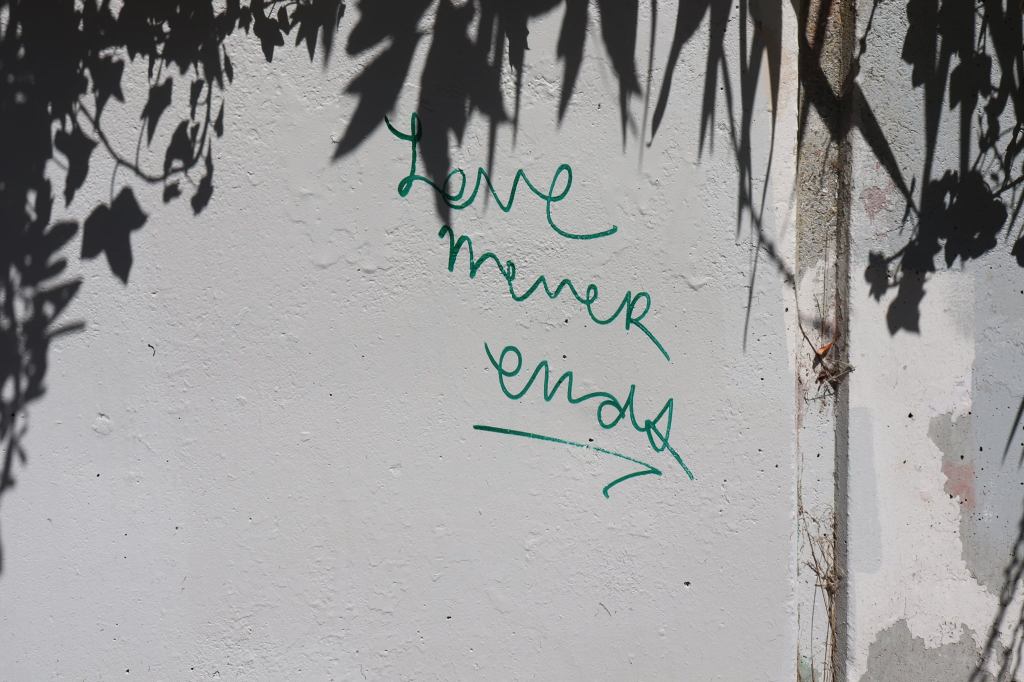 Love
never
ends